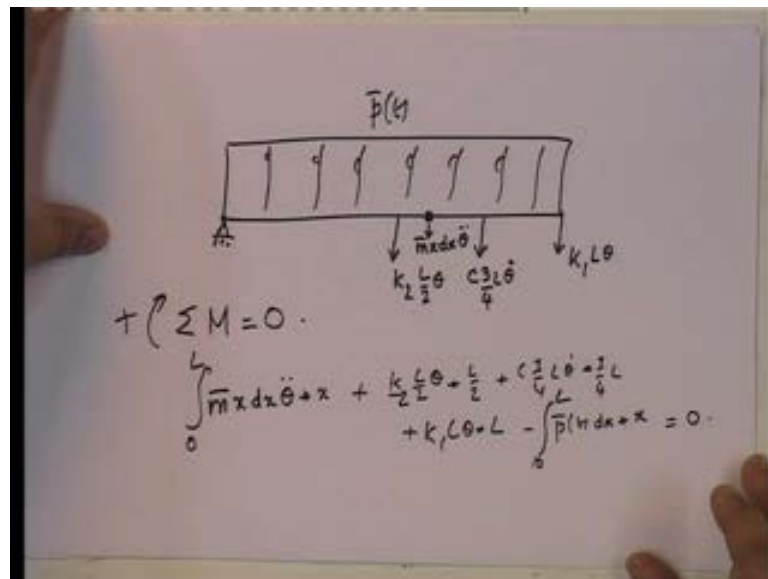 p̄(t)
m̄xdxθ̈
K₂ L/2 θ C 3/4 Lθ̇ K₁Lθ
+ ΣM = 0.
∫₀ᴸ m̄xdxθ̈*x + K₂ L/2 θ * L/2 + C 3/4 Lθ̇ * 3/4 L
+ K₁Lθ*L - ∫₀ᴸ p̄(t)dx*x = 0.